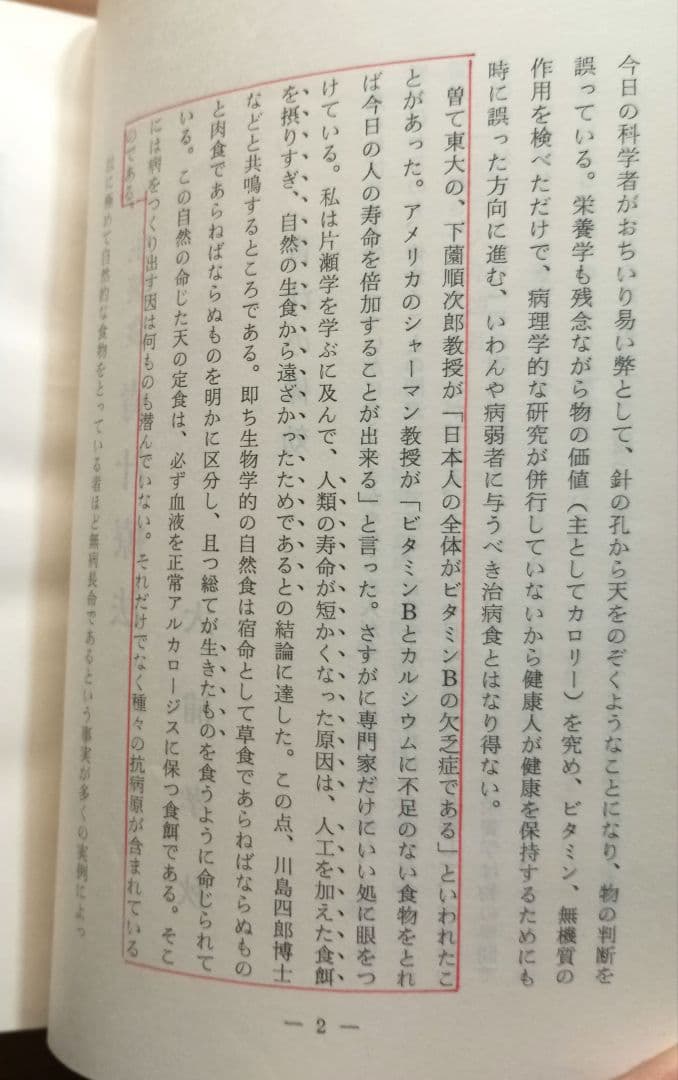 今日の科学者がおちいり易い弊として、針の孔から天をのぞくようなことになり、物の判断を
誤っている。栄養学も残念ながら物の価値(主としてカロリー)を究め、ビタミン、無機質の
作用を検べただけで、病理学的な研究が併行していないから健康人が健康を保持するためにも
時に誤った方向に進む、いわんや病弱者に与うべき治病食とはなり得ない。
曽て東大の、下薗順次郎教授が「日本人の全体がビタミンBの欠乏症である」といわれたこ
とがあった。アメリカのシャーマン教授が「ビタミンBとカルシウムに不足のない食物をとれ
ば今日の人の寿命を倍加することが出来る」と言った。さすがに専門家だけにいい処に眼をつ
けている。私は片瀬学を学ぶに及んで、人類の寿命が短かくなった原因は、人工を加えた食餌
を摂りすぎ、自然の生食から遠ざかったためであるとの結論に達した。この点、川島四郎博士
などと共鳴するところである。即ち生物学的の自然食は宿命として草食であらねばならぬもの
と肉食であらねばならぬものを明かに区分し、且つ総てが生きたものを食うように命じられて
いる。この自然の命じた天の定食は、必ず血液を正常アルカロージスに保つ食餌である。そこ
には病をつくり出す因は何ものも潜んでいない。それだけでなく種々の抗病原が含まれている
のである。
に極めて自然的な食物をとっている者ほど無病長命であるという事実が多くの実例によっ
— 2 —